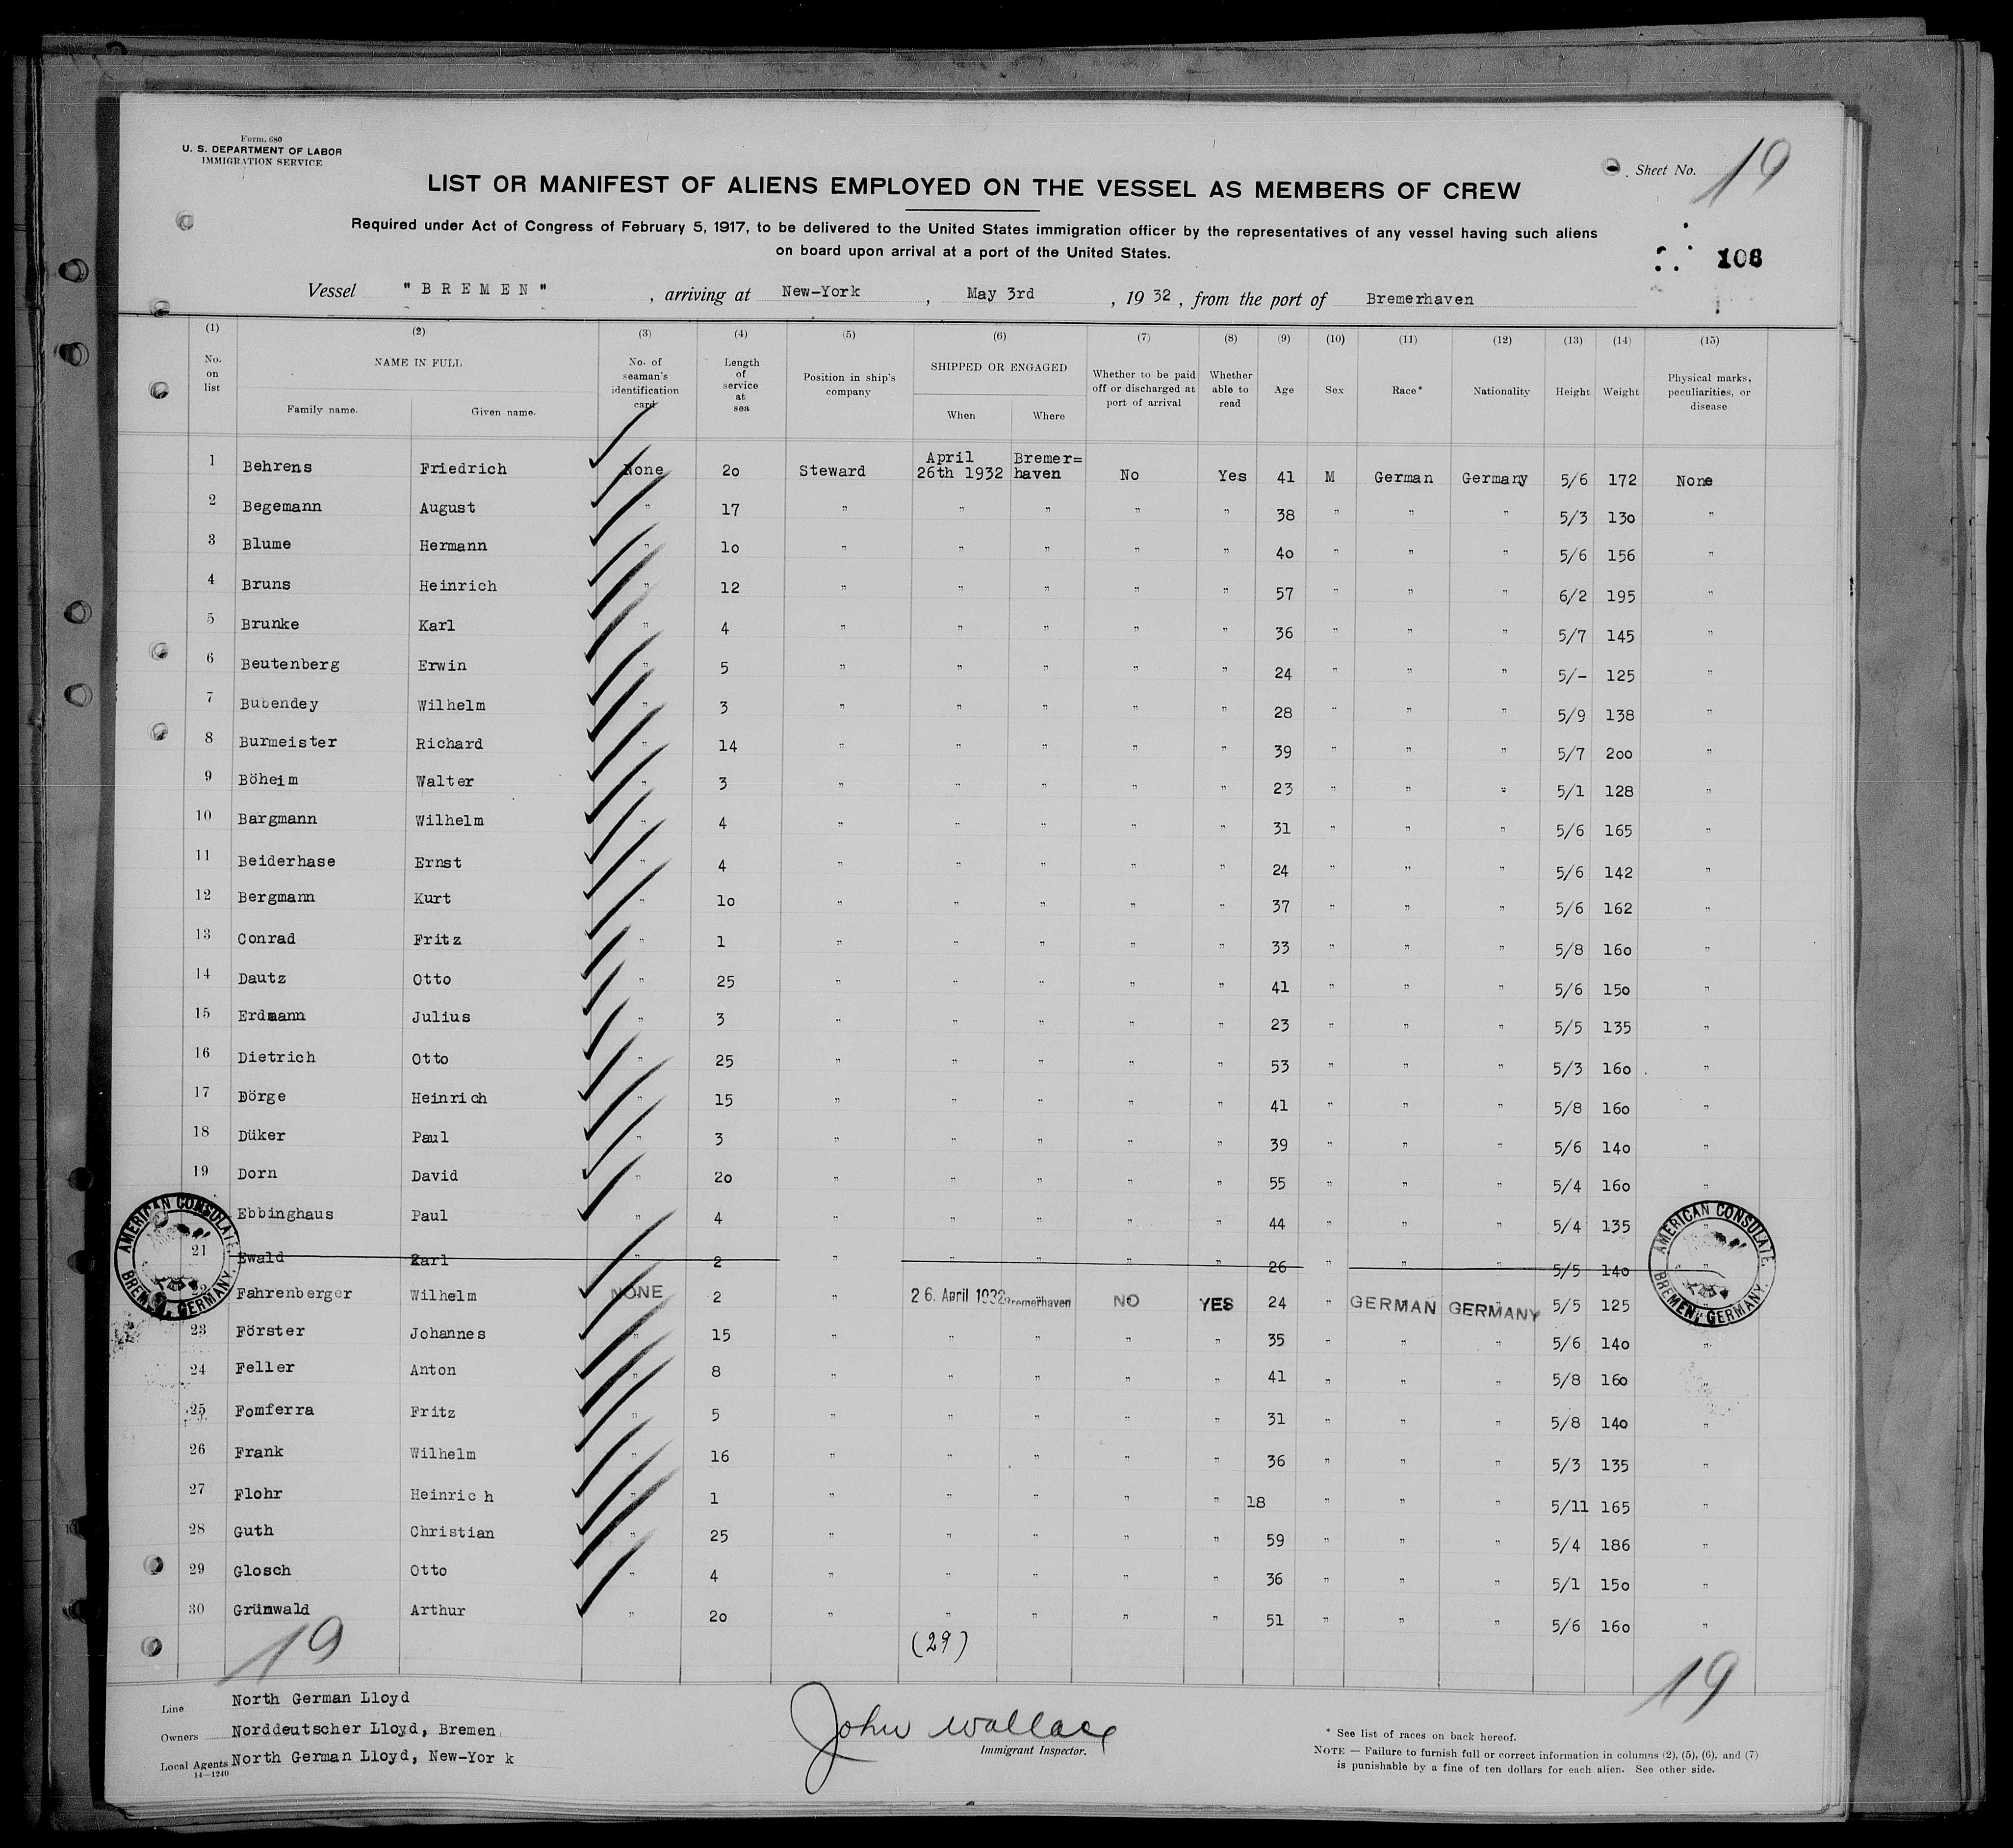 Form. 680
U. S. DEPARTMENT OF LABOR
IMMIGRATION SERVICE
Sheet No. 19
LIST OR MANIFEST OF ALIENS EMPLOYED ON THE VESSEL AS MEMBERS OF CREW
Required under Act of Congress of February 5, 1917, to be delivered to the United States immigration officer by the representatives of any vessel having such aliens
on board upon arrival at a port of the United States.
108
Vessel "BREMEN", arriving at New-York, May 3rd, 1932, from the port of Bremerhaven
(1) (2) (3) (4) (5) (6) (7) (8) (9) (10) (11) (12) (13) (14) (15)
No. on list NAME IN FULL Family name. Given name. No. of seaman's identification card Length of service at sea Position in ship's company SHIPPED OR ENGAGED When Where Whether to be paid off or discharged at port of arrival Whether able to read Age Sex Race* Nationality Height Weight Physical marks, peculiarities, or disease
1 Behrens Friedrich None 2o Steward April 26th 1932 Bremer=haven No Yes 41 M German Germany 5/6 172 None
2 Begemann August " 17 " " " " " 38 " " " 5/3 13o "
3 Blume Hermann " 1o " " " " " 4o " " " 5/6 156 "
4 Bruns Heinrich " 12 " " " " " 57 " " " 6/2 195 "
5 Brunke Karl " 4 " " " " " 36 " " " 5/7 145 "
6 Beutenberg Erwin " 5 " " " " " 24 " " " 5/- 125 "
7 Bubendey Wilhelm " 3 " " " " " 28 " " " 5/9 138 "
8 Burmeister Richard " 14 " " " " " 39 " " " 5/7 2oo "
9 Böheim Walter " 3 " " " " " 23 " " " 5/1 128 "
10 Bargmann Wilhelm " 4 " " " " " 31 " " " 5/6 165 "
11 Beiderhase Ernst " 4 " " " " " 24 " " " 5/6 142 "
12 Bergmann Kurt " 1o " " " " " 37 " " " 5/6 162 "
13 Conrad Fritz " 1 " " " " " 33 " " " 5/8 16o "
14 Dautz Otto " 25 " " " " " 41 " " " 5/6 15o "
15 Erdmann Julius " 3 " " " " " 23 " " " 5/5 135 "
16 Dietrich Otto " 25 " " " " " 53 " " " 5/3 16o "
17 Dörge Heinrich " 15 " " " " " 41 " " " 5/8 16o "
18 Düker Paul " 3 " " " " " 39 " " " 5/6 14o "
19 Dorn David " 2o " " " " " 55 " " " 5/4 16o "
Ebbinghaus Paul " 4 " " " " " 44 " " " 5/4 135 "
21 Ewald Karl " 2 " " " " " 26 " " " 5/5 14o "
Fahrenberger Wilhelm NONE 2 " 26. April 1932 Bremerhaven NO YES 24 " GERMAN GERMANY 5/5 125 "
23 Förster Johannes " 15 " " " " " 35 " " " 5/6 14o "
24 Feller Anton " 8 " " " " " 41 " " " 5/8 16o
25 Fomferra Fritz " 5 " " " " " 31 " " " 5/8 14o "
26 Frank Wilhelm " 16 " " " " " 36 " " " 5/3 135 "
27 Flohr Heinrich " 1 " " " " " 18 " " " 5/11 165 "
28 Guth Christian " 25 " " " " " 59 " " " 5/4 186 "
29 Glosch Otto " 4 " " " " " 36 " " " 5/1 15o "
30 Grünwald Arthur " 2o " " " " " 51 " " " 5/6 16o "
AMERICAN CONSULATE, BREMEN, GERMANY.
AMERICAN CONSULATE, BREMEN, GERMANY.
19
(29)
19
Line North German Lloyd
Owners Norddeutscher Lloyd, Bremen
Local Agents North German Lloyd, New-York
14—1240
John Wallace
Immigrant Inspector.
* See list of races on back hereof.
NOTE — Failure to furnish full or correct information in columns (2), (5), (6), and (7)
is punishable by a fine of ten dollars for each alien. See other side.